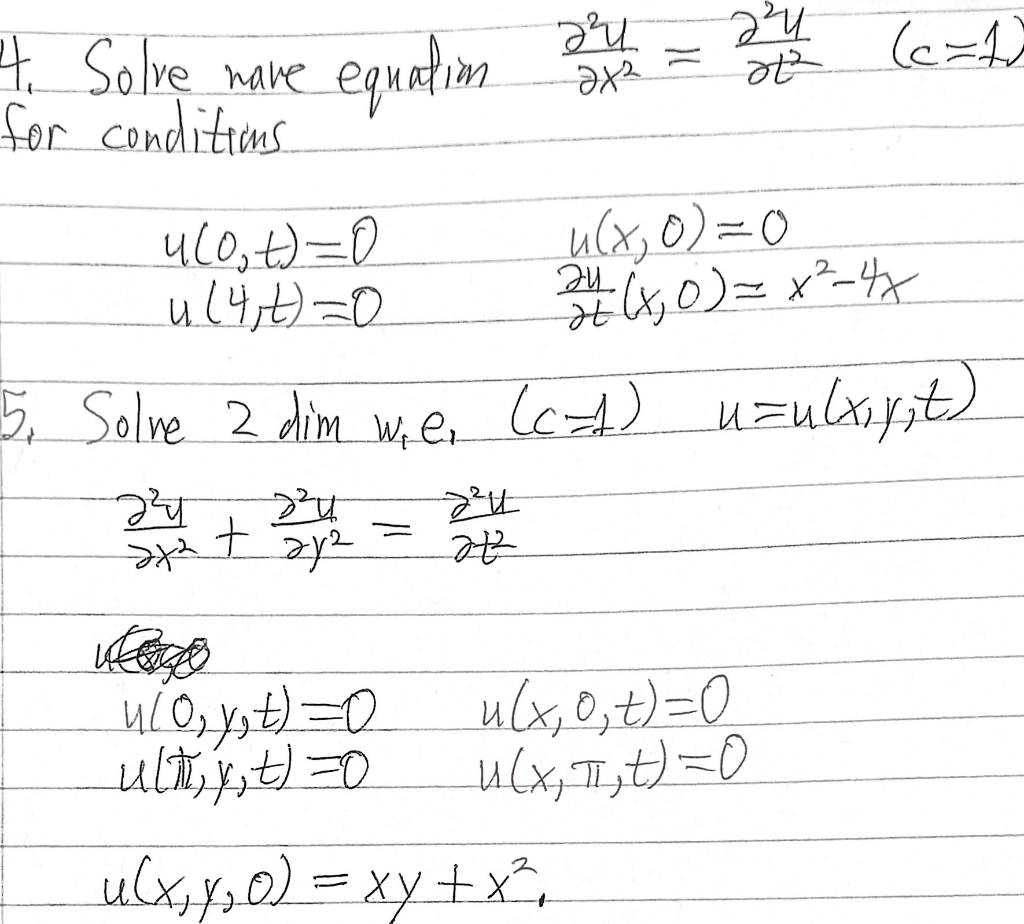 4. Solve wave equation ∂²u/∂x² = ∂²u/∂t² (c=1)
for conditions
u(0,t)=0 u(x,0)=0
u(4,t)=0 ∂u/∂t (x,0)= x²-4x
5. Solve 2 dim w.e. (c=1) u=u(x,y,t)
∂²u/∂x² + ∂²u/∂y² = ∂²u/∂t²
u(0,y,t)=0 u(x,0,t)=0
u(π,y,t)=0 u(x,π,t)=0
u(x,y,0) = xy + x².